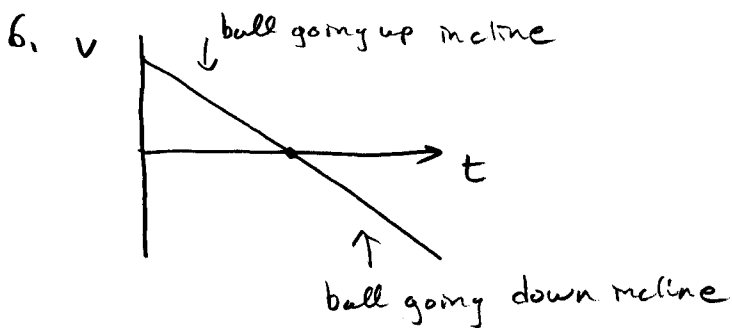 6. v
ball going up incline
t
ball going down incline